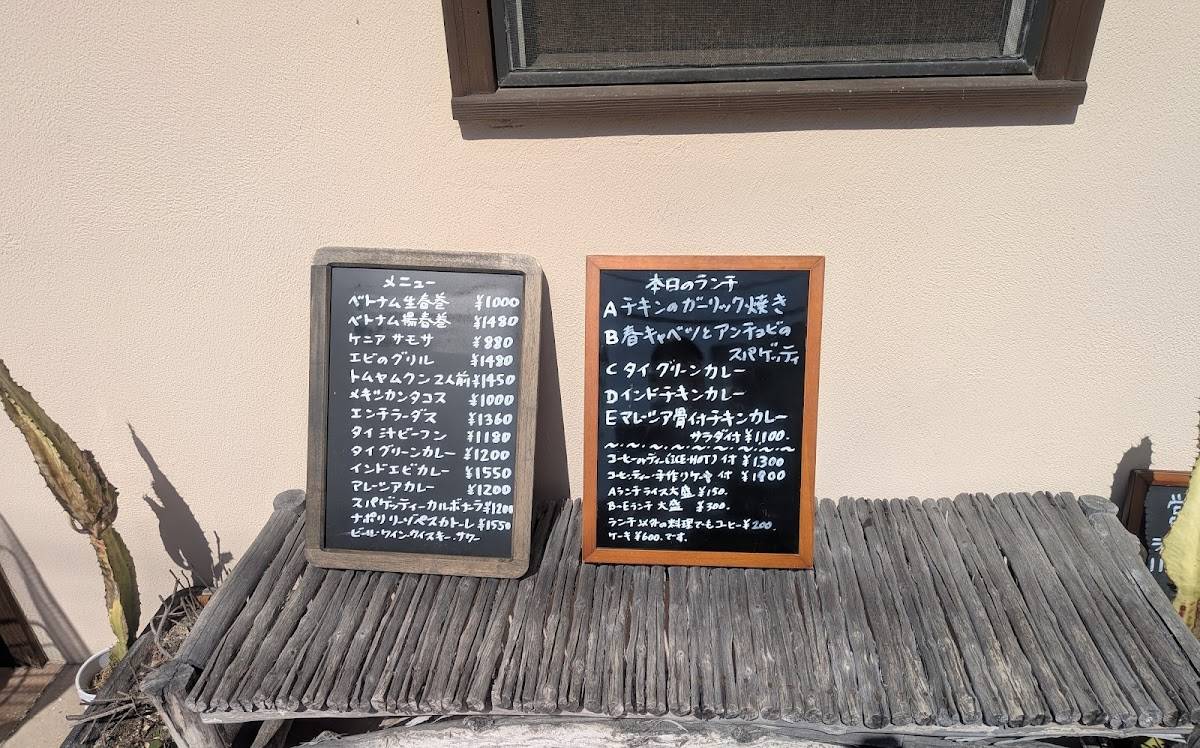 メニュー
ベトナム生春巻 ¥1000
ベトナム揚春巻 ¥1480
ケニア サモサ ¥880
エビのグリル ¥1480
トムヤムクン2人前 ¥1450
メキシカンタコス ¥1000
エンチラーダス ¥1360
タイ汁ビーフン ¥1180
タイグリーンカレー ¥1200
インドエビカレー ¥1550
マレーシアカレー ¥1200
スパゲッティーカルボナーラ ¥1200
ナポリ リーノペスカトーレ ¥1550
ビール・ワイン・ウイスキー・サワー
本日のランチ
A チキンのガーリック焼き
B 春キャベツとアンチョビの
スパゲッティ
C タイ グリーンカレー
D インドチキンカレー
E マレーシア骨付チキンカレー
サラダ付 ¥1,100.
コーヒーorティー(ICE・HOT) 付 ¥1,300
コーヒー・ティー・手作りケーキ 付 ¥1,800
Aランチ ライス大盛 ¥150.
B~Eランチ 大盛 ¥300.
ランチ以外の料理でもコーヒー¥200.
ケーキ¥600.です。